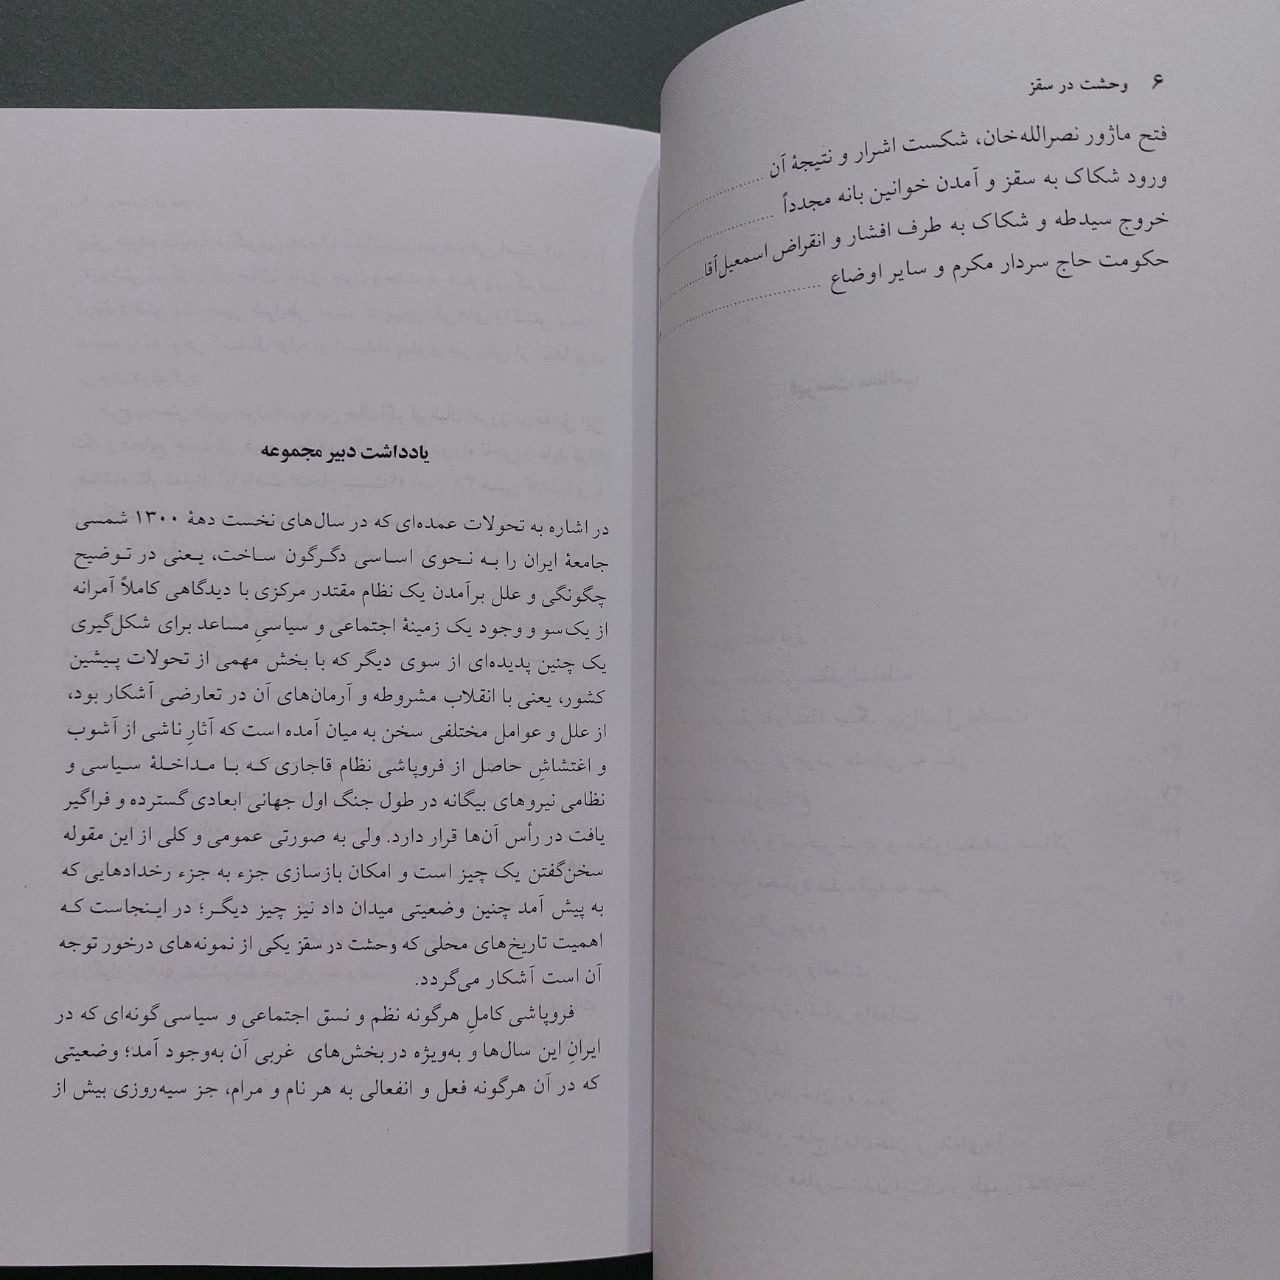 ۶ وحشت در سقز
فتح ماژور نصرالله‌خان، شکست اشرار و نتیجهٔ آن
ورود شکاک به سقز و آمدن خوانین بانه مجدداً
خروج سیدطه و شکاک به طرف افشار و انقراض اسمعیل‌آقا
حکومت حاج سردار مکرم و سایر اوضاع
یادداشت دبیر مجموعه
در اشاره به تحولات عمده‌ای که در سال‌های نخست دههٔ ۱۳۰۰ شمسی
جامعهٔ ایران را به نحوی اساسی دگرگون ساخت، یعنی در توضیح
چگونگی و علل برآمدن یک نظام مقتدر مرکزی با دیدگاهی کاملاً آمرانه
از یک‌سو و وجود یک زمینهٔ اجتماعی و سیاسیِ مساعد برای شکل‌گیری
یک چنین پدیده‌ای از سوی دیگر که با بخش مهمی از تحولات پیشین
کشور، یعنی با انقلاب مشروطه و آرمان‌های آن در تعارضی آشکار بود،
از علل و عوامل مختلفی سخن به میان آمده است که آثارِ ناشی از آشوب
و اغتشاشِ حاصل از فروپاشی نظام قاجاری که با مداخلهٔ سیاسی و
نظامی نیروهای بیگانه در طول جنگ اول جهانی ابعادی گسترده و فراگیر
یافت در رأس آن‌ها قرار دارد. ولی به صورتی عمومی و کلی از این مقوله
سخن‌گفتن یک چیز است و امکان بازسازی جزء به جزء رخدادهایی که
به پیش آمد چنین وضعیتی میدان داد نیز چیز دیگر؛ در اینجاست که
اهمیت تاریخ‌های محلی که وحشت در سقز یکی از نمونه‌های درخور توجه
آن است آشکار می‌گردد.
فروپاشی کاملِ هرگونه نظم و نسق اجتماعی و سیاسی گونه‌ای که در
ایرانِ این سال‌ها و به‌ویژه در بخش‌های غربی آن به‌وجود آمد؛ وضعیتی
که در آن هرگونه فعل و انفعالی به هر نام و مرام، جز سیه‌روزی بیش از